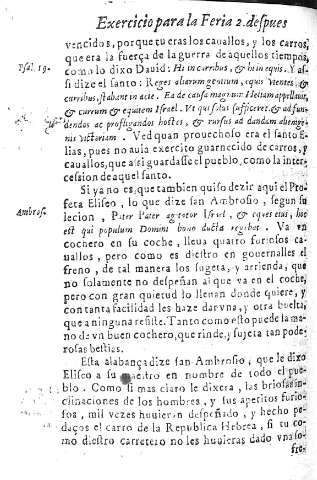 Exercicio para la Feria 2. despues
vencidos, porque tu eras los cauallos, y los carros,
que era la fuerça de la guerra de aquellos tiempos,
Psal. 19. como lo dixo Dauid: Hi in curribus, & hi in equis. Y as-
si dize el santo: Reges aliarum gentium, equis vtentes, &
curribus, stabant in acie. Ea de causa magnum Heliam appellauit,
& currum & equitem Israel. Vt qui solus sufficeret & ad fun-
dendos ac profligandos hostes, & rursus ad dandam alienige-
nis victoriam. Ved quan prouechoso era el santo E-
lias, pues no auia exercito guarnecido de carros, y
cauallos, que assi guardasse el pueblo, como la inter-
cession de aquel santo.
Si ya no es, que tambien quiso dezir aqui el Pro-
feta Eliseo, lo que dize san Ambrosio, segun su
Ambros. lecion, Pater Pater agitator Israel, & eques eius, hoc
est qui populum Domini bono ductu regebat. Va en
cochero en su coche, lleua quatro furiosos ca-
uallos, pero como es diestro en gouernalles el
freno, de tal manera los sugeta, y arrienda, que
no solamente no despeñan al que va en el coche,
pero con gran quietud lo lleuan donde quiere, y
con tanta facilidad les haze dar vna, y otra buelta,
que a ninguna resiste. Tanto como esto puede la ma-
no de vn buen cochero, que rinde, y sujeta tan pode-
rosas bestias.
Esta alabança dize san Ambrosio, que le dixo
Eliseo a su maestro en nombre de todo el pue-
blo. Como si mas claro le dixera, las briosas in-
clinaciones de los hombres, y sus apetitos furio-
sos, mil vezes huuieran despeñado, y hecho pe-
daços el carro de la Republica Hebrea, si tu co-
mo diestro carretero no les huuieras dado vna so-
fre-